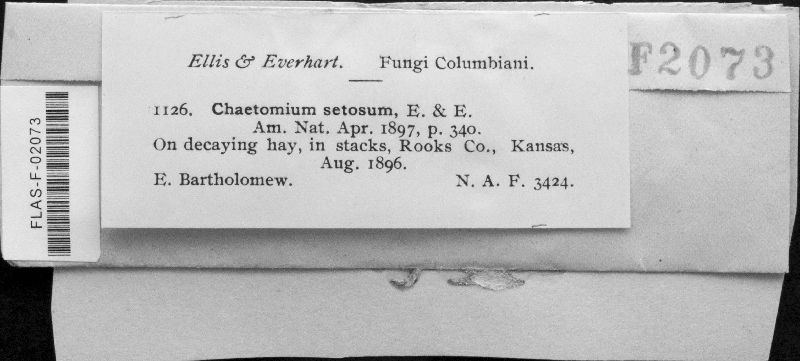 Ellis & Everhart. Fungi Columbiani.
F2073
1126. Chaetomium setosum, E. & E.
Am. Nat. Apr. 1897, p. 340.
On decaying hay, in stacks, Rooks Co., Kansas,
Aug. 1896.
E. Bartholomew. N. A. F. 3424.
FLAS-F-02073